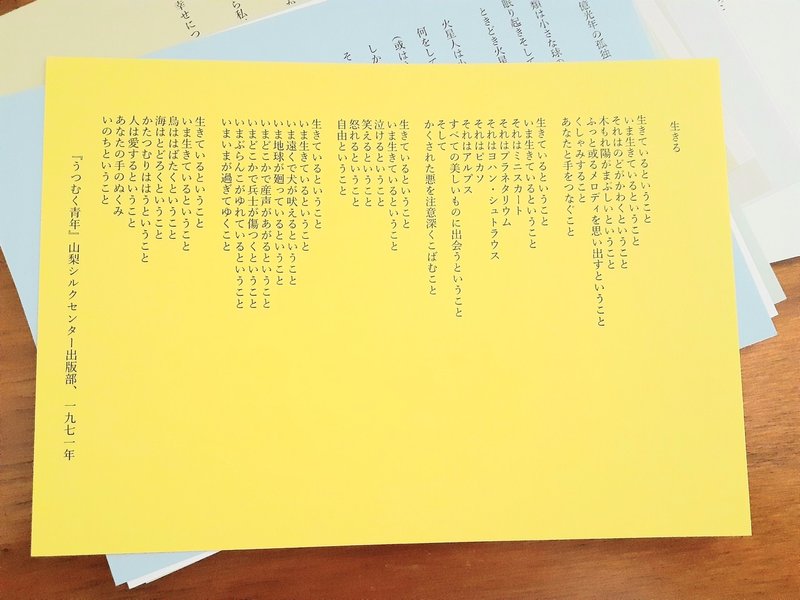 生きる
生きているということ
いま生きているということ
それはのどがかわくということ
木もれ陽がまぶしいということ
ふっと或るメロディを思い出すということ
くしゃみすること
あなたと手をつなぐこと
生きているということ
いま生きているということ
それはミニスカート
それはプラネタリウム
それはヨハン・シュトラウス
それはピカソ
それはアルプス
すべての美しいものに出会うということ
そして
かくされた悪を注意深くこばむこと
生きているということ
いま生きているということ
泣けるということ
笑えるということ
怒れるということ
自由ということ
生きているということ
いま生きているということ
いま遠くで犬が吠えるということ
いま地球が廻っているということ
いまどこかで産声があがるということ
いまどこかで兵士が傷つくということ
いまぶらんこがゆれているということ
いまいまが過ぎてゆくこと
生きているということ
いま生きているということ
鳥ははばたくということ
海はとどろくということ
かたつむりははうということ
人は愛するということ
あなたの手のぬくみ
いのちということ
『うつむく青年』山梨シルクセンター出版部、一九七一年
億光年の孤独
類は小さな球の
眠り起きそして
ときどき火星
火星人は小
何をして
(或は
しか
そ
ら私
幸せにつ